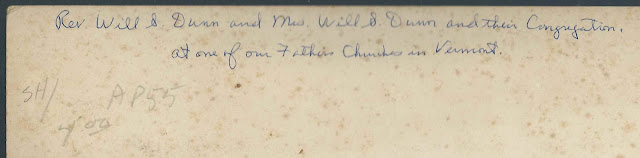 Rev. Will S. Dunn and Mrs. Will S. Dunn and their Congregation.
at one of our Fathers Churches in Vermont.
SH/
AP55
4.00